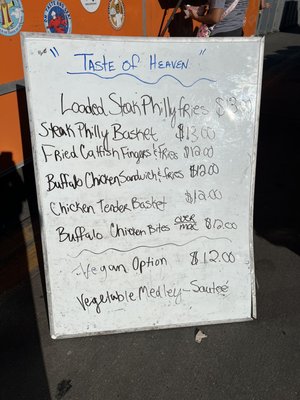 " Taste of Heaven "
Loaded Steak Philly fries $13.00
Steak Philly Basket $13.00
Fried Catfish Fingers & fries $12.00
Buffalo Chicken Sandwich & fries $12.00
Chicken Tender Basket $12.00
Buffalo Chicken Bites over mac $12.00
Vegan Option $12.00
Vegetable Medley - Sauteé